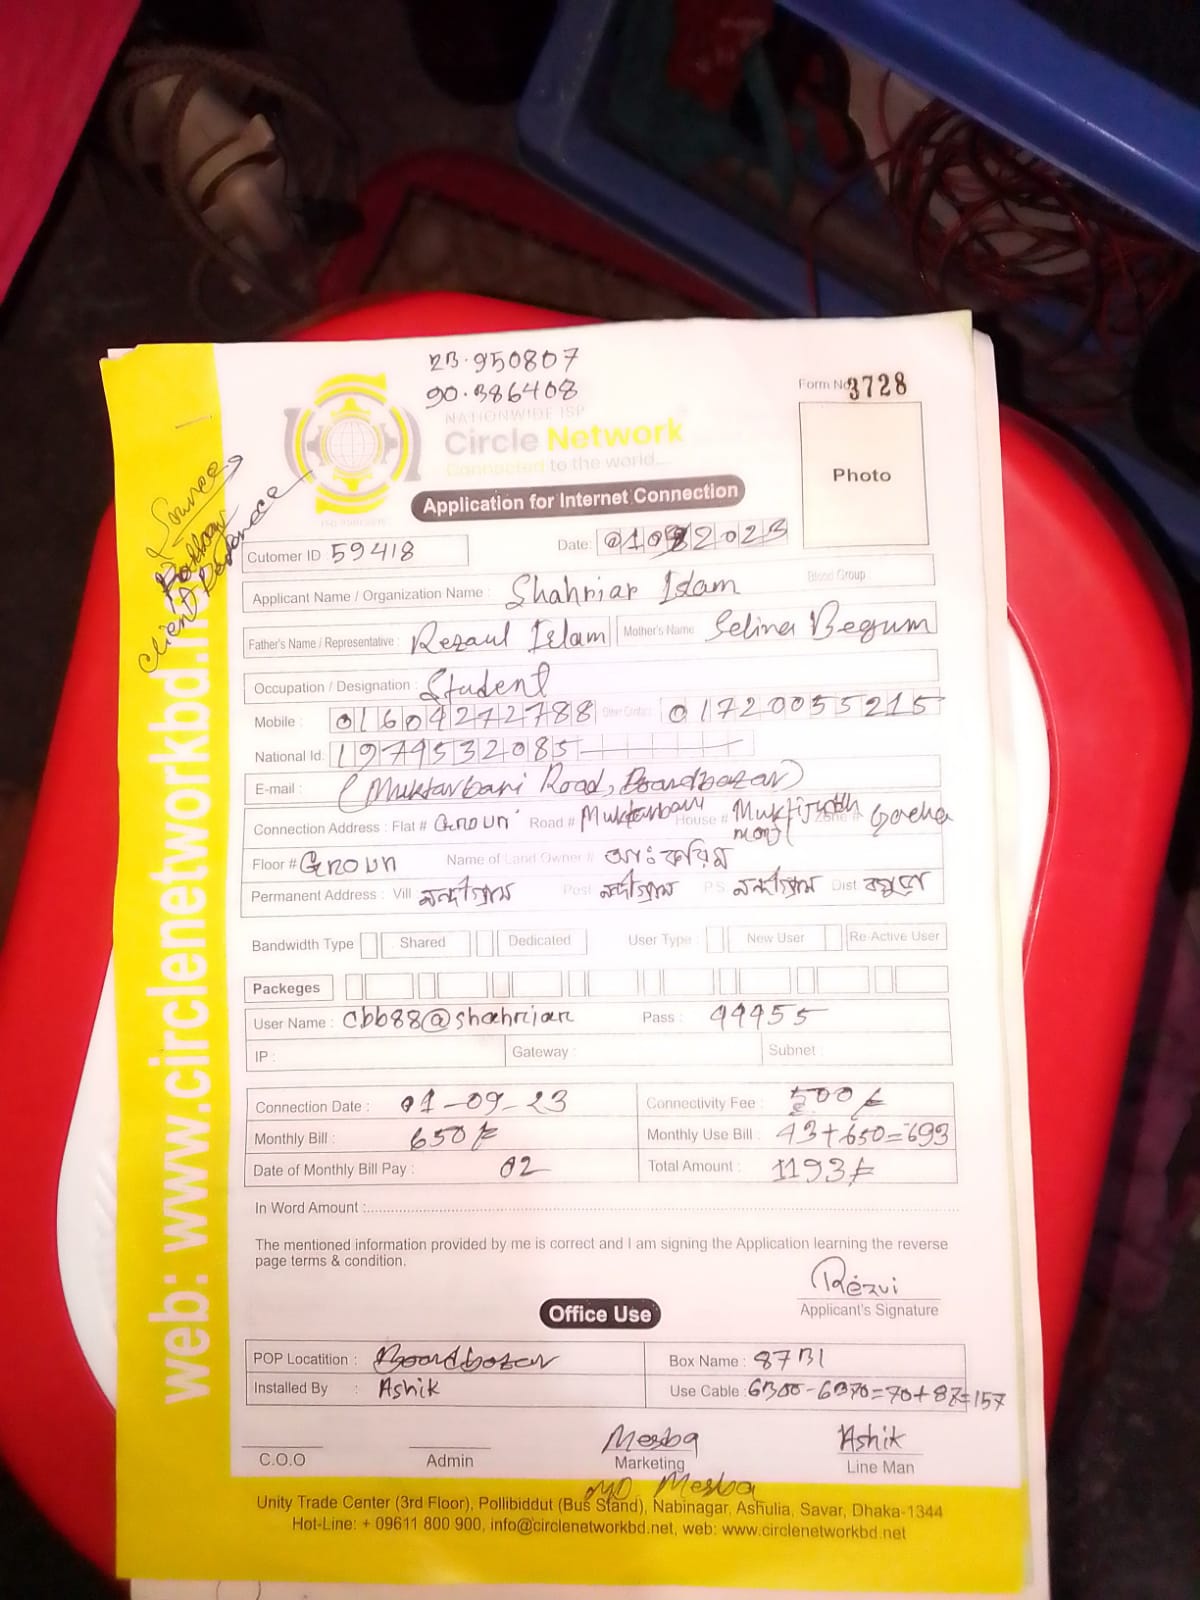 23.950807
90.386408
Form No 3728
NATIONWIDE ISP
Circle Network
Connected to the world...
Photo
Application for Internet Connection
Source
Client Reference
Cutomer ID 59418
Date: 2023
Applicant Name / Organization Name : Shahriar Islam Blood Group
Father's Name / Representative : Rezaul Islam Mother's Name Selina Begum
Occupation / Designation : Student
Mobile : 01604272788 Other Contact 01720055215
National Id. 1979532085
E-mail : (Muktarbari Road, Boardbazar)
Connection Address : Flat # Groun Road # Muktarbari House # Zone # Gacha
Floor # Groun Name of Land Owner # আঃ করিম
Permanent Address : Vill নন্দীগ্রাম Post নন্দীগ্রাম P.S নন্দীগ্রাম Dist বগুড়া
Bandwidth Type Shared Dedicated User Type : New User Re-Active User
Packeges
User Name : cbb88@shahriar Pass : 99955
IP : Gateway : Subnet :
Connection Date : 01-09-23 Connectivity Fee : 500/=
Monthly Bill : 650/= Monthly Use Bill : 43+650=693
Date of Monthly Bill Pay : 02 Total Amount : 1193/=
In Word Amount :
The mentioned information provided by me is correct and I am signing the Application learning the reverse
page terms & condition.
Rezvi
Applicant's Signature
Office Use
POP Locatition : Boardbazar Box Name : 87B1
Installed By : Ashik Use Cable : 6300-6370=70+87=157
Mesba Ashik
C.O.O Admin Marketing Line Man
Mesba
Unity Trade Center (3rd Floor), Pollibiddut (Bus Stand), Nabinagar, Ashulia, Savar, Dhaka-1344
Hot-Line: + 09611 800 900, info@circlenetworkbd.net, web: www.circlenetworkbd.net
web: www.circlenetworkbd.net